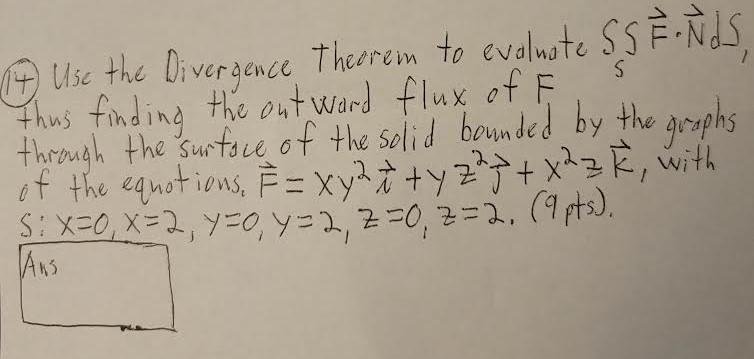 (14) Use the Divergence Theorem to evaluate ∫∫_S F⃗·N⃗ dS,
thus finding the outward flux of F
through the surface of the solid bounded by the graphs
of the equations. F⃗ = xy² i⃗ + yz² j⃗ + x²z k⃗, with
S: x=0, x=2, y=0, y=2, z=0, z=2. (9 pts).
Ans